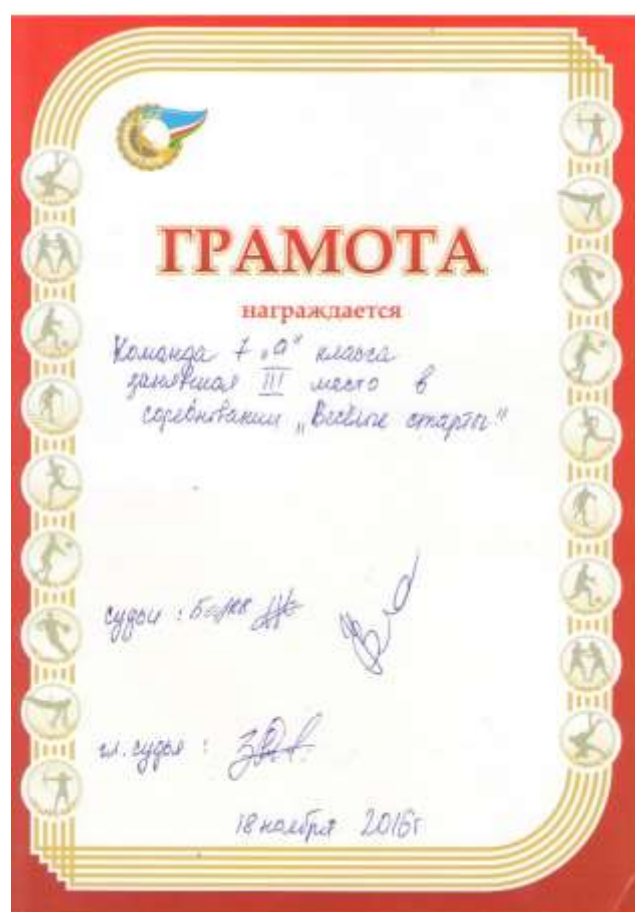 ГРАМОТА
награждается
Команда 7 „а" класса
занявшая III место в
соревновании „Весёлые старты"
судьи :
гл. судья :
18 ноября 2016г